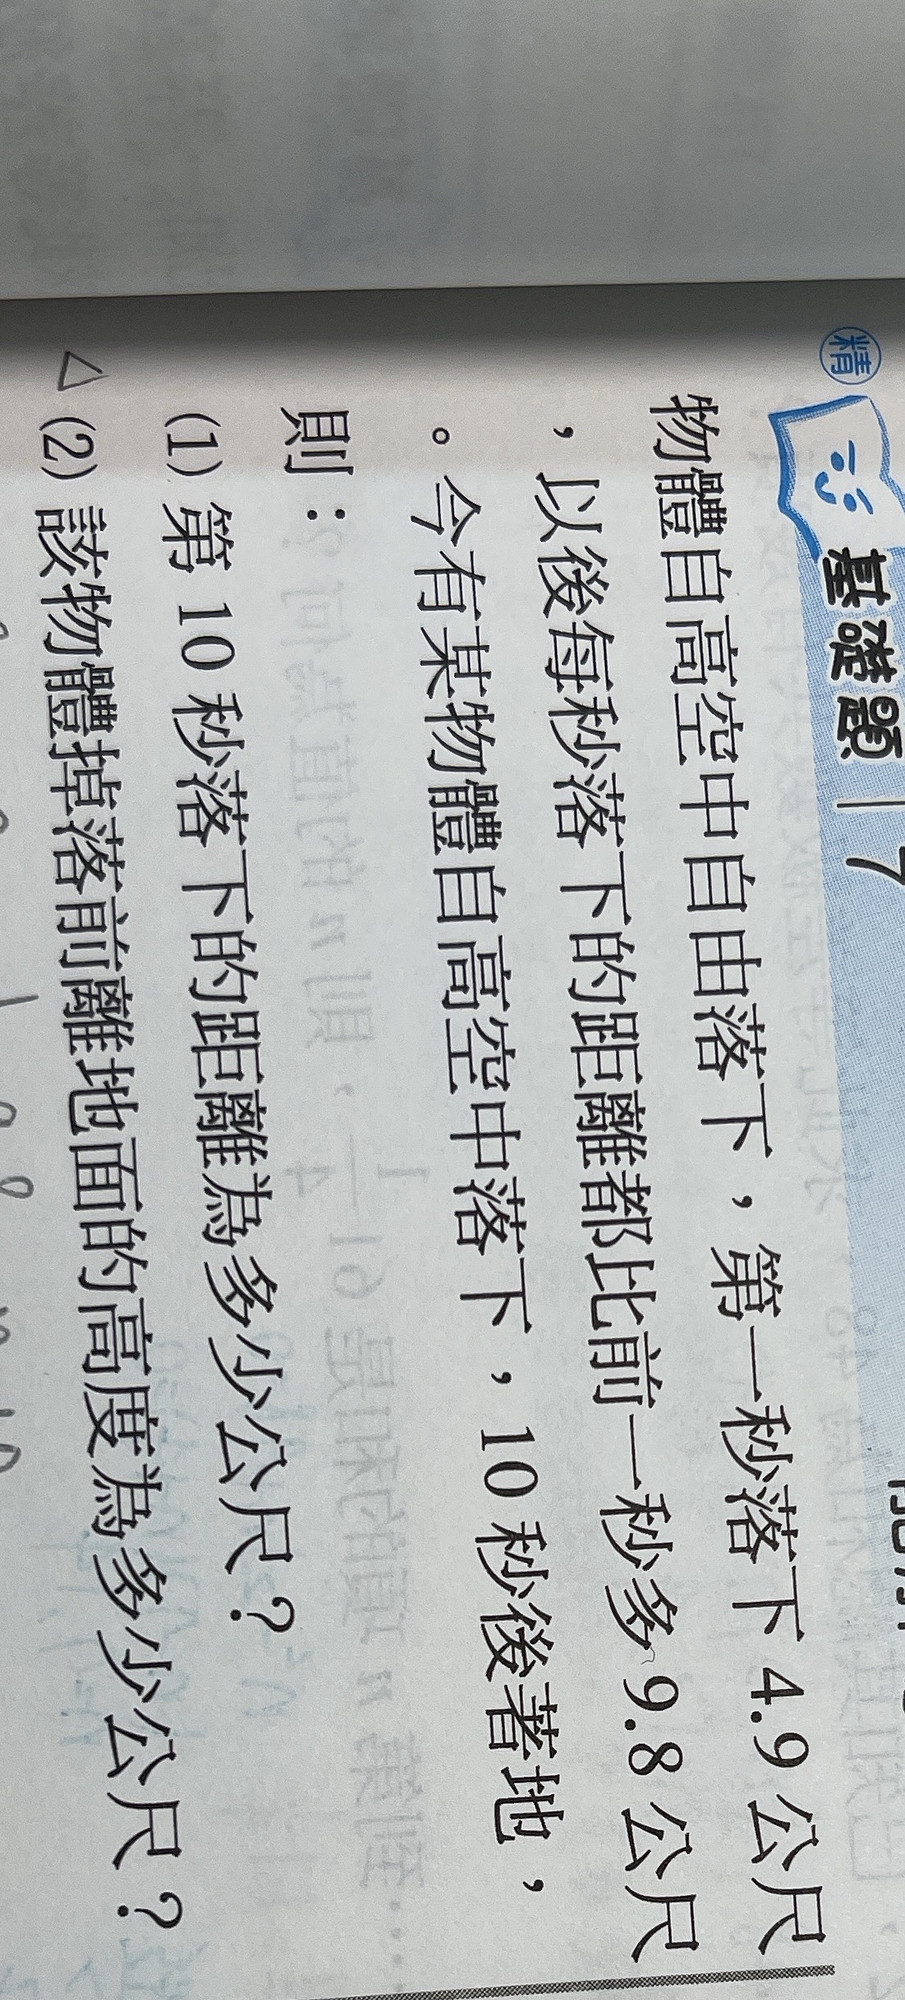 精
基礎題 7
物體自高空中自由落下，第一秒落下 4.9 公尺
，以後每秒落下的距離都比前一秒多 9.8 公尺
。今有某物體自高空中落下，10 秒後著地，
則：
(1) 第 10 秒落下的距離為多少公尺？
△ (2) 該物體掉落前離地面的高度為多少公尺？